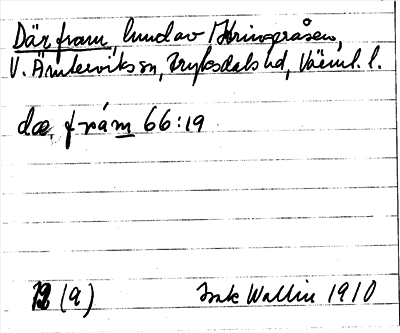 Där fram, lund av Kringeråsen,
V. Ämterviks sn, Fryksdals hd, Värml. l.
dæ, frám 66:19
(a) Isak Wallin 1910